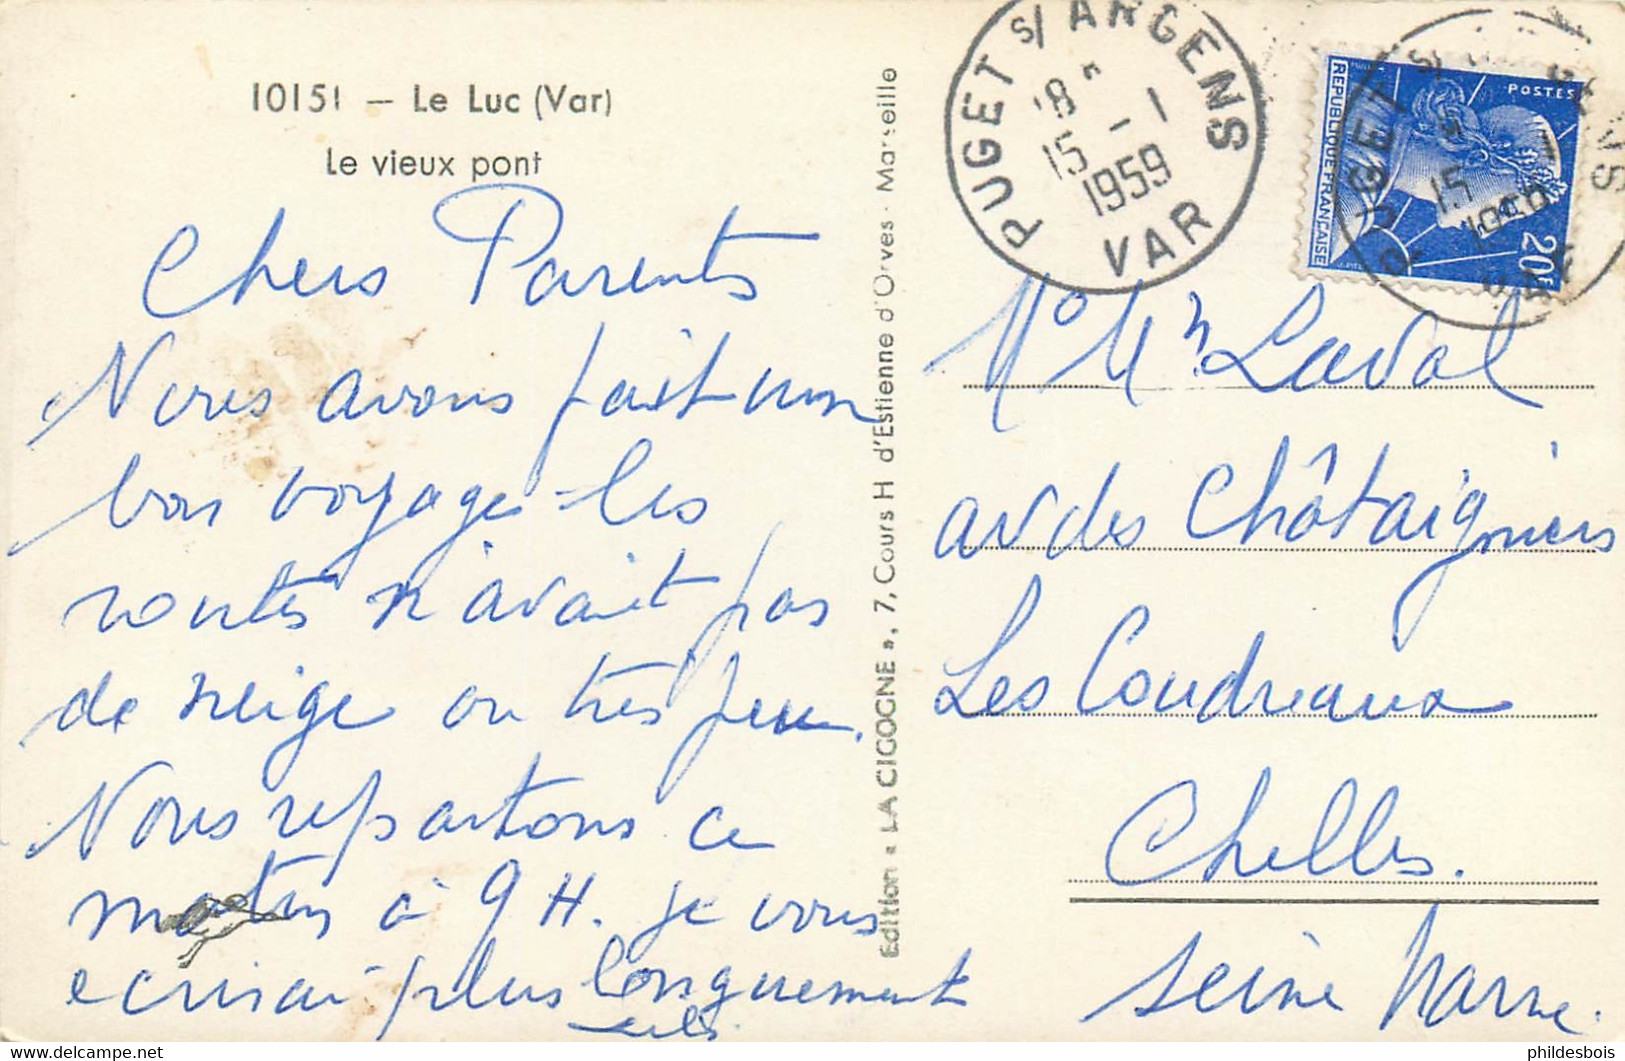 10151 — Le Luc (Var)
Le vieux pont
Chers Parents
Nous avons fait un
bon voyage les
routes n'avait pas
de neige ou très peu.
Nous repartons ce
matin à 9 H. je vous
ecrirai plus longuement
Edition « LA CIGOGNE », 7, Cours H d'Estienne d'Orves - Marseille
PUGET S/ ARGENS
18 H
15 - 1
1959
VAR
POSTES
REPUBLIQUE FRANÇAISE
20F
PUGET S/ ARGENS
15 - 1
1959
VAR
Mr Mme Laval
av des Châtaigniers
Les Coudreaux
Chelles.
Seine Marne.
phildesbois